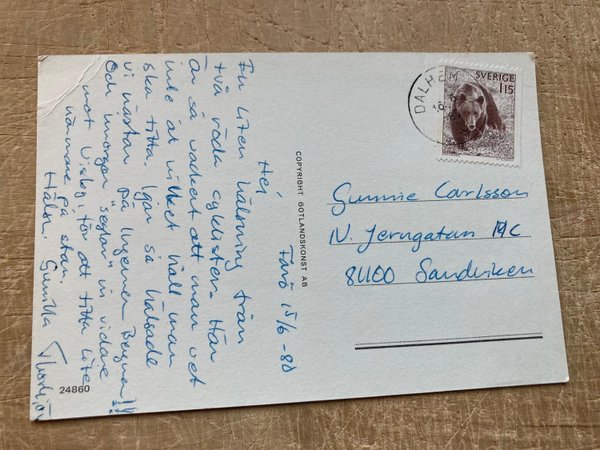 Hej, Fårö 15/6-80
En liten hälsning från
två röda cyklister. Här
är så vackert att man vet
inte åt vilket håll man
ska titta. Igår så hälsade
vi nästan på Ingemar Bergman!!
Och imorgon "seglar" vi vidare
mot Visby, för att titta lite
närmare på stan.
Hälsn. Gunilla
COPYRIGHT GOTLANDSKONST AB
24860
DALHEM
SVERIGE
115
Gunnie Carlsson
N. Jerngatan 19C
81100 Sandviken